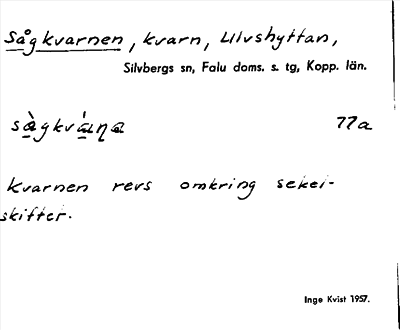 Sågkvarnen, kvarn, Ulvshyttan,
Silvbergs sn, Falu doms. s. tg, Kopp. län.
77a
Kvarnen revs omkring sekel-
skiftet.
Inge Kvist 1957.